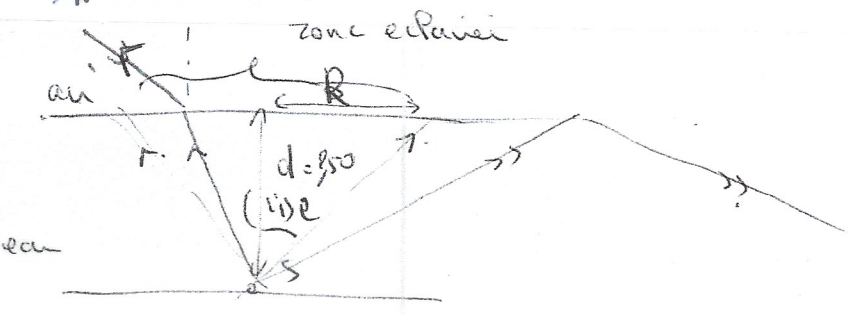 zone eclairei
l
air
R
r
d = 2,50
(i)e
eau
S